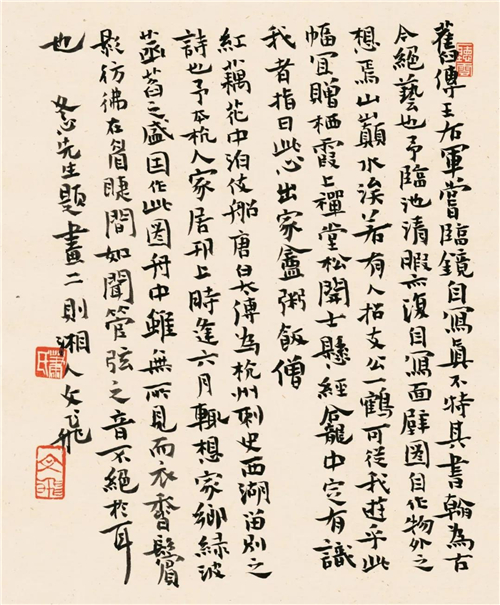 舊傳王右軍嘗臨鏡自寫真不特其書翰為古
今絕藝也予臨池清暇亦復自寫面壁圖自作物外之
想焉山巔水涘若有人招支公一鶴可從我遊乎此
幅宜贈栖霞上禪堂松開士懸經龕中定有識
我者指曰此心出家盦粥飯僧
紅藕花中泊伎船唐白太傅為杭州刺史西湖留別之
詩也予本杭人家居邗上時逢六月輒想家鄉綠波
菡萏之盛因作此圖舟中雖無所見而衣香鬢
影彷彿在眉睫間如聞管弦之音不絕於耳
也
冬心先生題畫二則湘人文飛
文飛